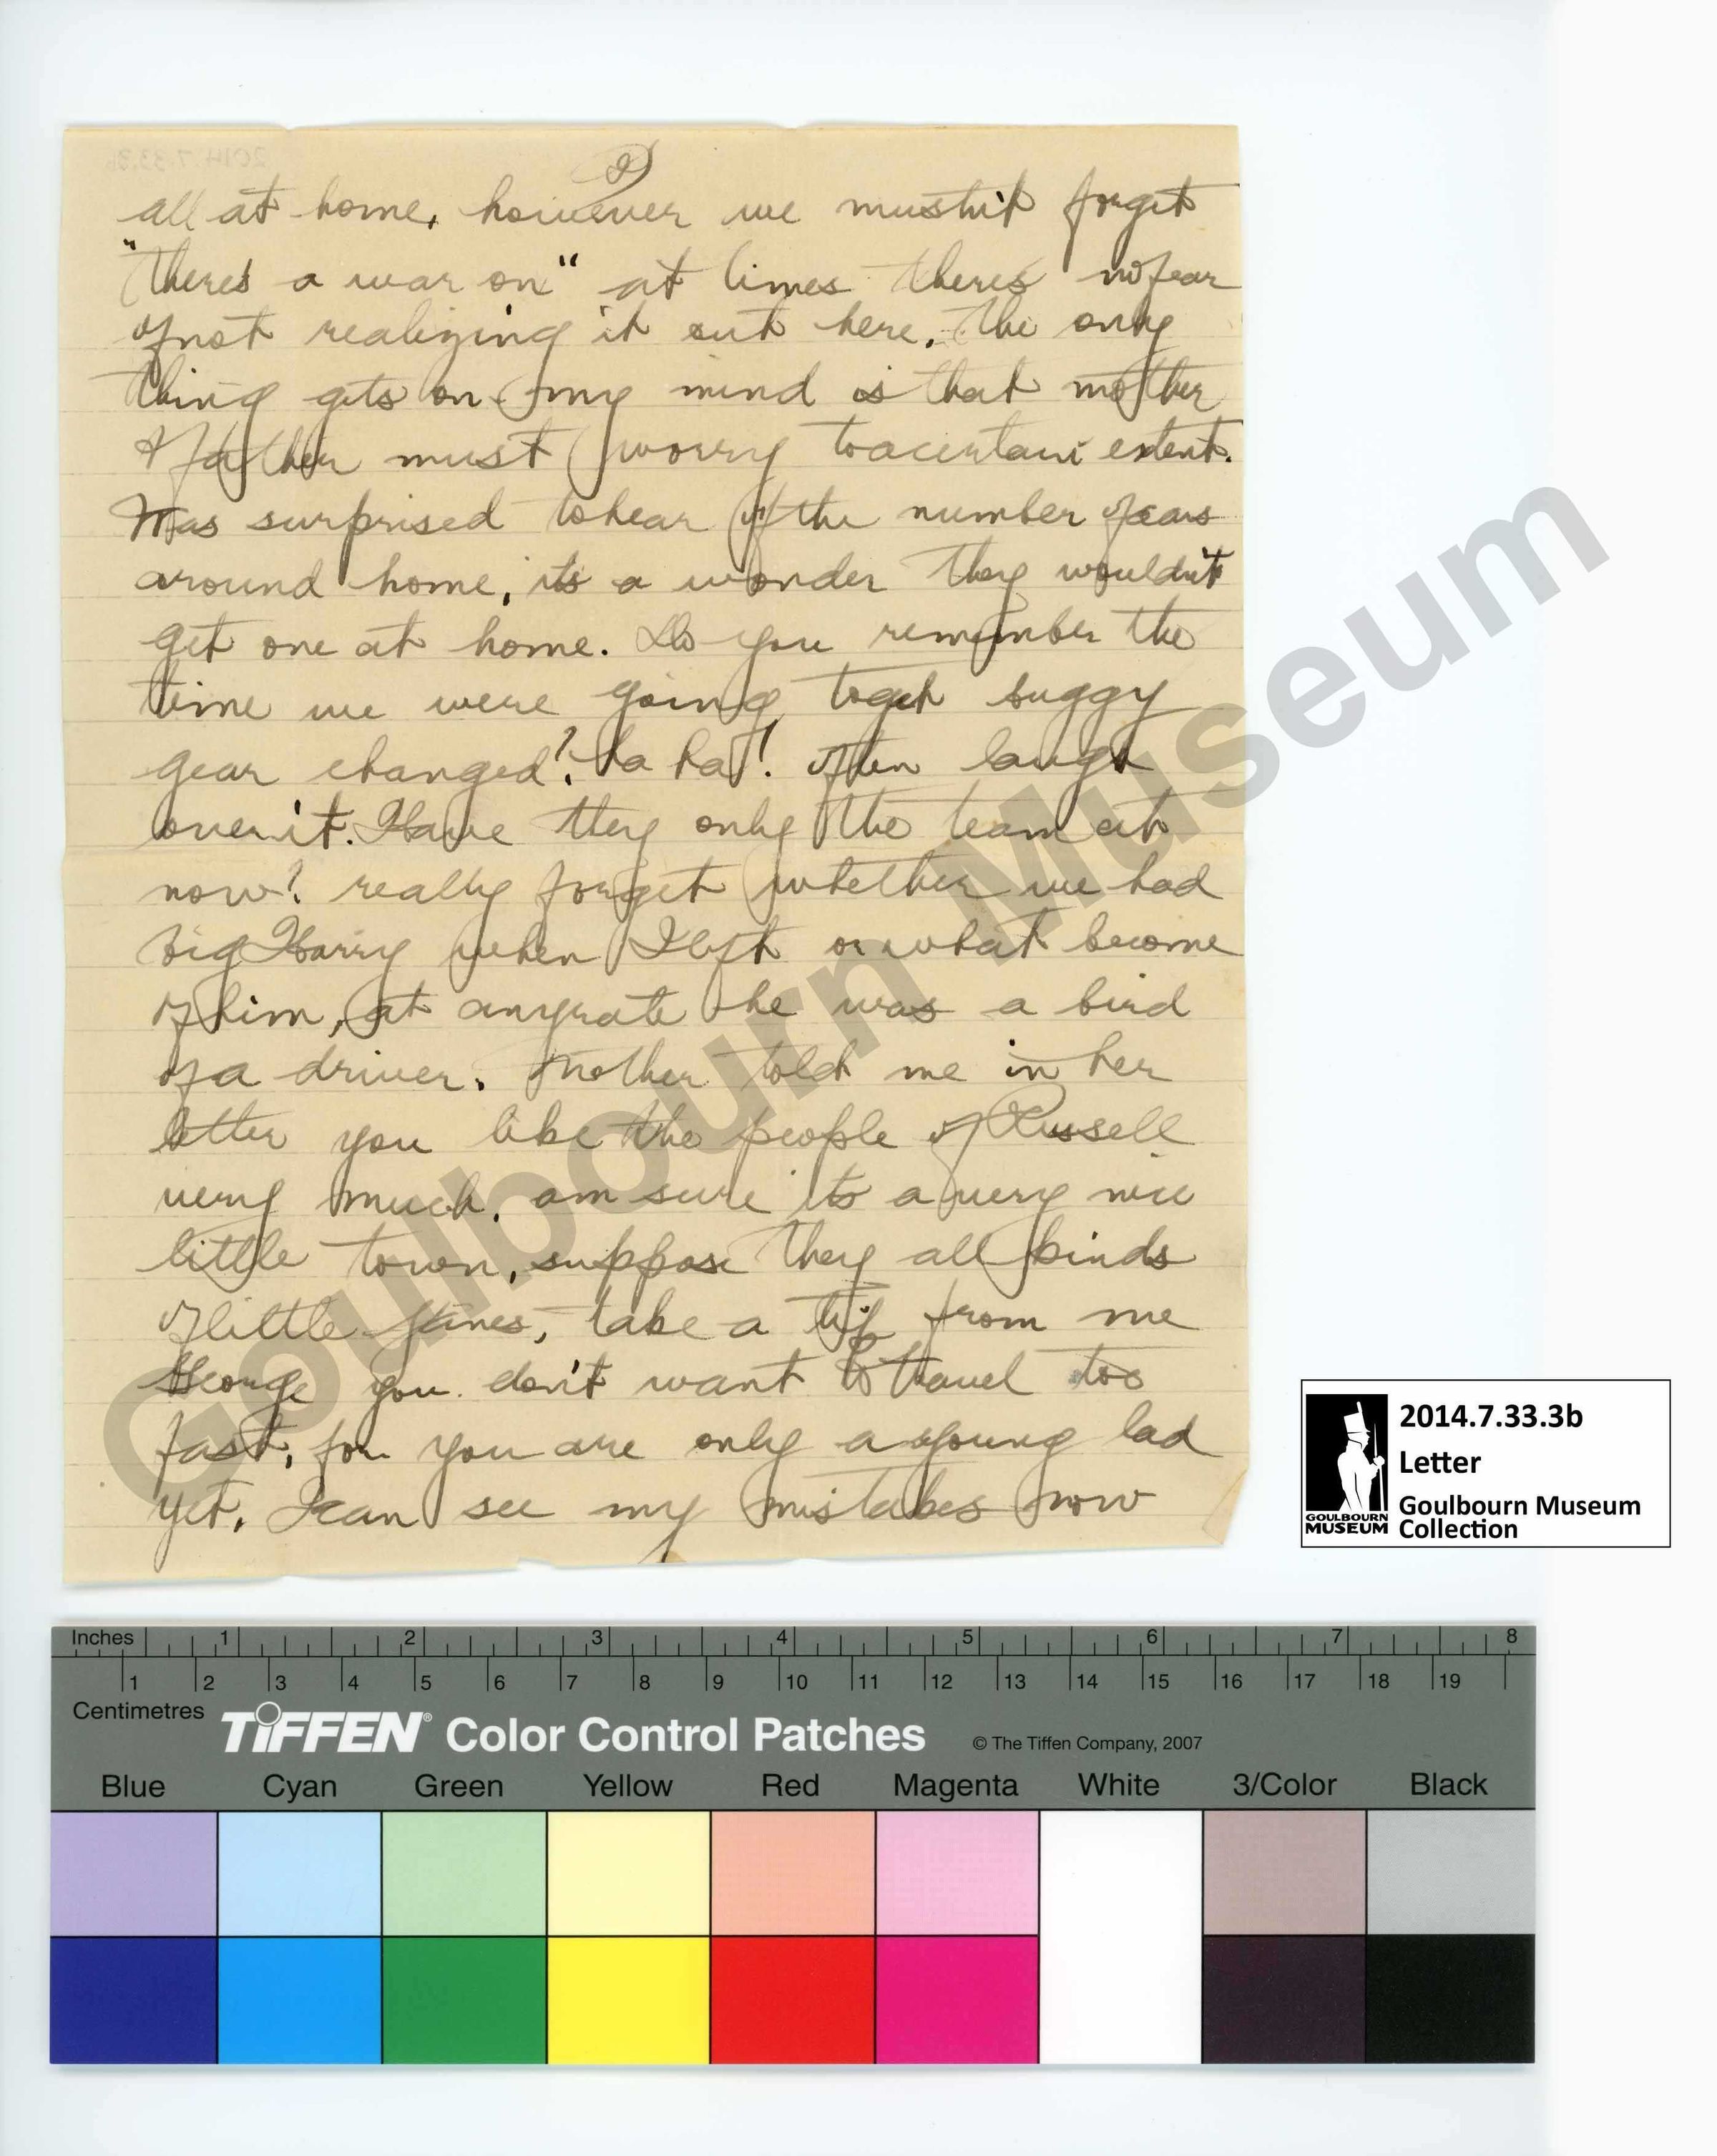 2)
all at home, however we mustn't forget
"there's a war on" at times theres no fear
of not realizing it out here. The only
thing gets on my mind is that mother
& father must worry to a certain extent.
Was surprised to hear of the number of cars
around home, its a wonder they wouldn't
get one at home. Do you remember the
time we were going to get buggy
gear changed? ha ha! often laugh
over it. Have they only the team at
now? really forget whether we had
big Harry when I left or what become
of him, at anyrate he was a bird
of a driver. Mother told me in her
letter you like the people of Russell
very much. am sure its a very nice
little town, suppose they all kinds
of little Janes, take a tip from me
George you don't want to travel too
fast, for you are only a young lad
yet. I can see my mistakes now
Goulbourn Museum
GOULBOURN
MUSEUM
2014.7.33.3b
Letter
Goulbourn Museum
Collection
Inches 1 2 3 4 5 6 7 8
1 2 3 4 5 6 7 8 9 10 11 12 13 14 15 16 17 18 19
Centimetres
TIFFEN® Color Control Patches © The Tiffen Company, 2007
Blue Cyan Green Yellow Red Magenta White 3/Color Black